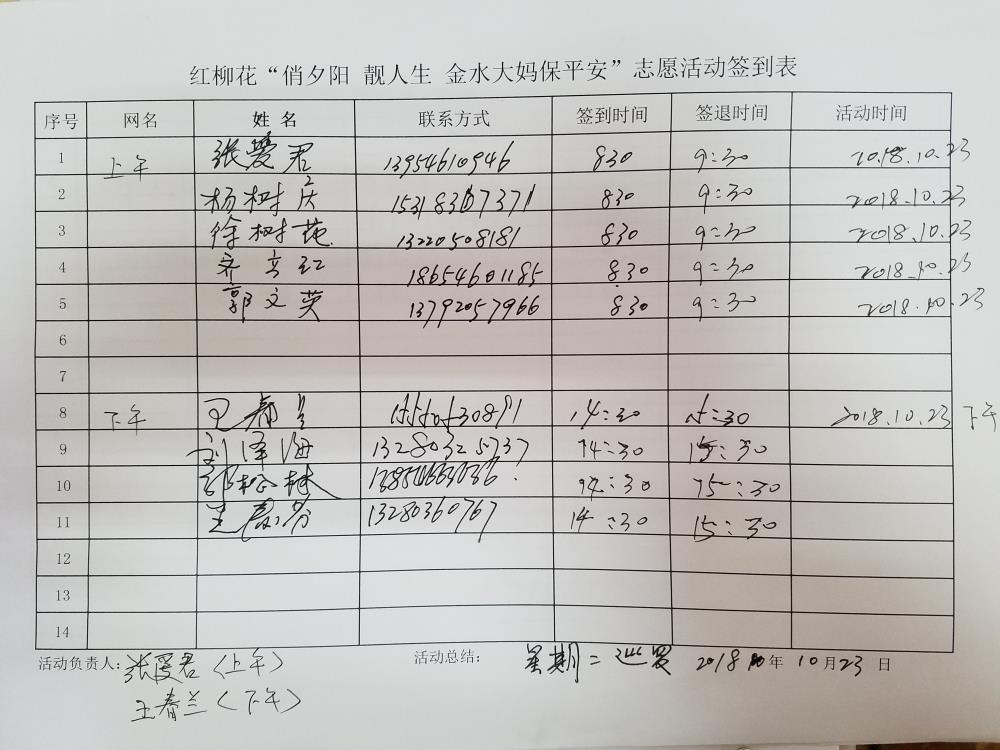 红柳花“俏夕阳 靓人生 金水大妈保平安”志愿活动签到表
序号 网名 姓名 联系方式 签到时间 签退时间 活动时间
1 上午 张爱君 13954610946 830 9:30 2018.10.23
2 杨树庆 15318367371 830 9:30 2018.10.23
3 徐树苑 13220508181 830 9:30 2018.10.23
4 齐立红 18654601185 830 9:30 2018.10.23
5 郭文英 13792057966 830 9:30 2018.10.23
6
7
8 下午 王春兰 14:30 15:30 2018.10.23 下午
9 刘泽海 13280325737 14:30 15:30
10 郭松林 14:30 15:30
11 13280360767 14:30 15:30
12
13
14
活动负责人: 张爱君(上午) 活动总结: 星期二巡罗 2018年10月23日
王春兰(下午)